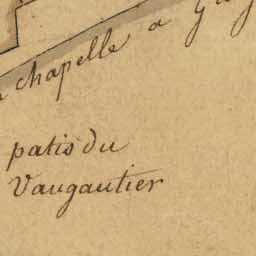 chapelle a
patis du
Vaugautier